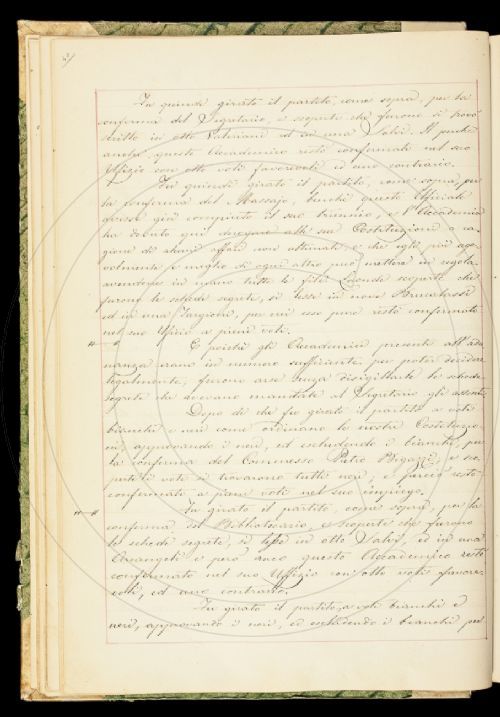 Fu quindi girato il partito, come sopra, per la
conferma del Segretario, e scoperto che furono si trovò
scritto in otto Valeriani ed in una Salvi. Il perchè
anche questo Accademico restò confermato nel suo
Ufizio con otto voti favorevoli ed uno contrario.
Fu quindi girato il partito, come sopra, per
la conferma del Massajo, benchè questo Ufiziale
avesse già compiuto il suo triennio, e l'Accademia
ha dovuto qui derogare alle sue Costituzioni a ca-
gione di alcuni affari non ultimati, e che egli più age-
volmente e meglio di ogni altro può mettere in regola
avendone in mano tutte le fila. Laonde scoperte che
furono le schede segrete, si lesse in nove
ed in una Targioni, per cui esso pure restò confermato
nel suo Ufizio a pieni voti.
E poichè gli Accademici presenti all'adu-
nanza erano in numero sufficiente per poter decidere
legalmente, furono arse senza disigillarle le schede
segrete che avevano mandate al Segretario gli assenti.
Dopo di che fu girato il partito a voti
bianchi e neri come ordinano le nostre Costituzio-
ni, approvando i neri, ed escludendo i bianchi, per
la conferma del Commesso Pietro Bigazzi, e sco-
perti i voti si trovarono tutti neri, e perciò restò
confermato a pieni voti nel suo impiego.
Fu girato il partito, come sopra, per la
conferma del Bibliotecario, e scoperte che furono
le schede segrete, si lesse in otto Salvi, ed in una
Arcangeli e però anco questo Accademico restò
confermato nel suo Uffizio con otto voti favore-
voli, ed uno contrario.
Fu girato il partito, a voti bianchi e
neri, approvando i neri, ed escludendo i bianchi per